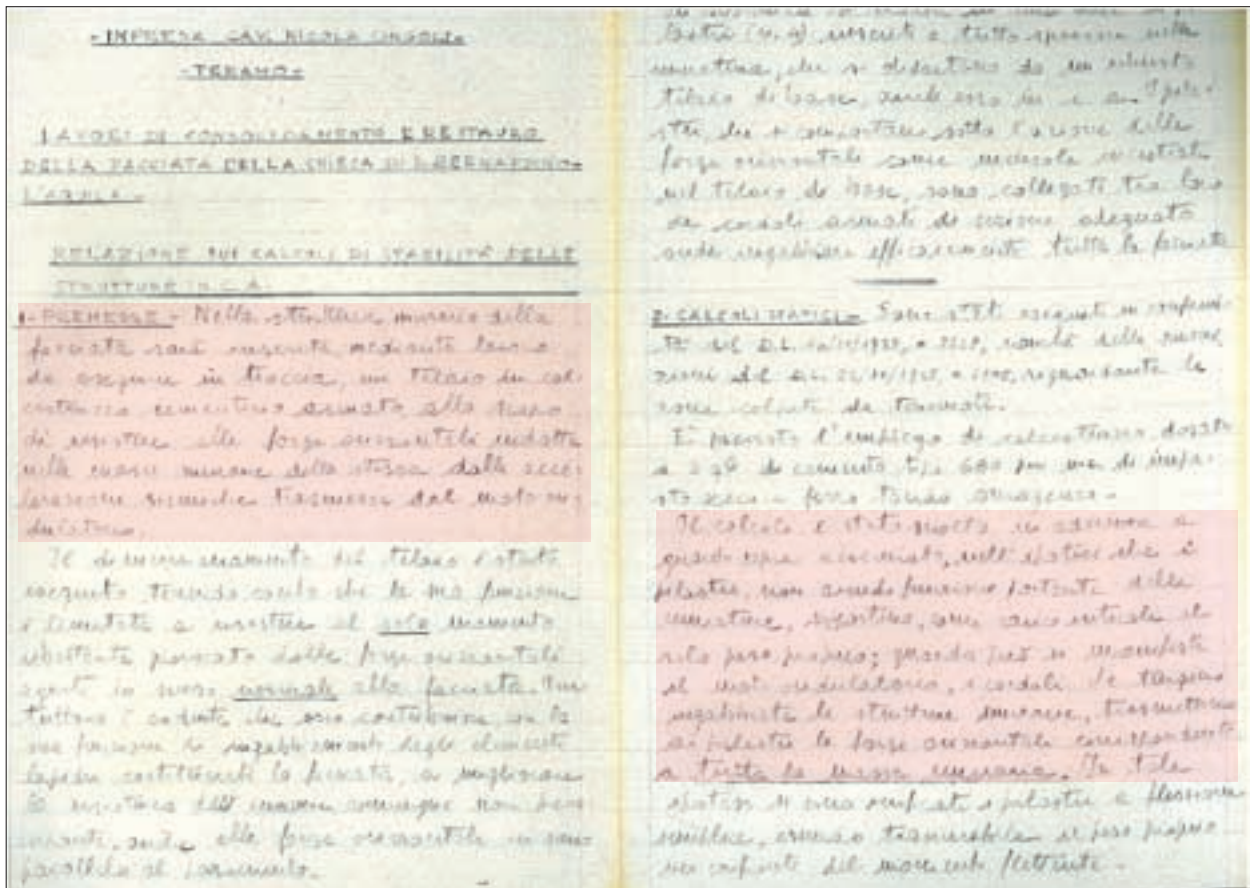 - IMPRESA CAV. NICOLA
- TERAMO -
LAVORI DI CONSOLIDAMENTO E RESTAURO
DELLA FACCIATA DELLA CHIESA DI S. BERNARDINO -
L'AQUILA -
RELAZIONE SUI CALCOLI DI STABILITÀ DELLE
STRUTTURE IN C. A.
1 - PREMESSE - Nella struttura muraria della
facciata sarà inserito, mediante lavoro
da eseguire in traccia, un telaio in cal
cestruzzo cementizio armato allo scopo
di resistere alle forze orizzontali indotte
nella massa muraria della stessa dalle acce
lerazioni sismiche trasmesse dal moto on
dulatorio.
Il dimensionamento del telaio è stato
eseguito tenendo conto che la sua funzione
è limitata a resistere al solo momento
ribaltante provocato dalle forze orizzontali
agenti in senso normale alla facciata.
che esso costituisca con la
sua funzione di ingabbiamento degli elementi
lapidei costituenti la facciata, a migliorare
la resistenza dell'insieme comunque non
alle forze orizzontali in senso
parallelo al paramento.
in
lastri (n. 9) inseriti a tutto spessore nella
muratura, che si dipartono da un robusto
telaio di base, anch'esso in c. a. I pila
stri, che si comportano, sotto l'azione delle
forze orizzontali come mensole incastrate
nel telaio di base, sono collegati tra loro
da cordoli armati di sezione adeguata
onde ingabbiare efficacemente tutta la facciata
2 - CALCOLI STATICI - Sono stati eseguiti in conformi
tà del D.L. nonché delle
del riguardante le
zone colpite da terremoti.
È previsto l'impiego di calcestruzzo dosato
a 3 qli di cemento tipo 680 per mc di impa
sto secco e ferro tondo omogeneo.
Il calcolo è stato svolto in adesione a
quanto sopra accennato, nell'ipotesi che i
pilastri, non avendo funzione portante della
muratura, sopportino, come carico verticale il
solo peso proprio; quando però si manifesti
il moto ondulatorio, i cordoli, che tengono
ingabbiata la struttura muraria, trasmettono
ai pilastri le forze orizzontali corrispondenti
a tutta la massa muraria. In tale
ipotesi si sono verificati i pilastri a flessione
semplice, essendo trascurabile il peso proprio
nei confronti del momento flettente.